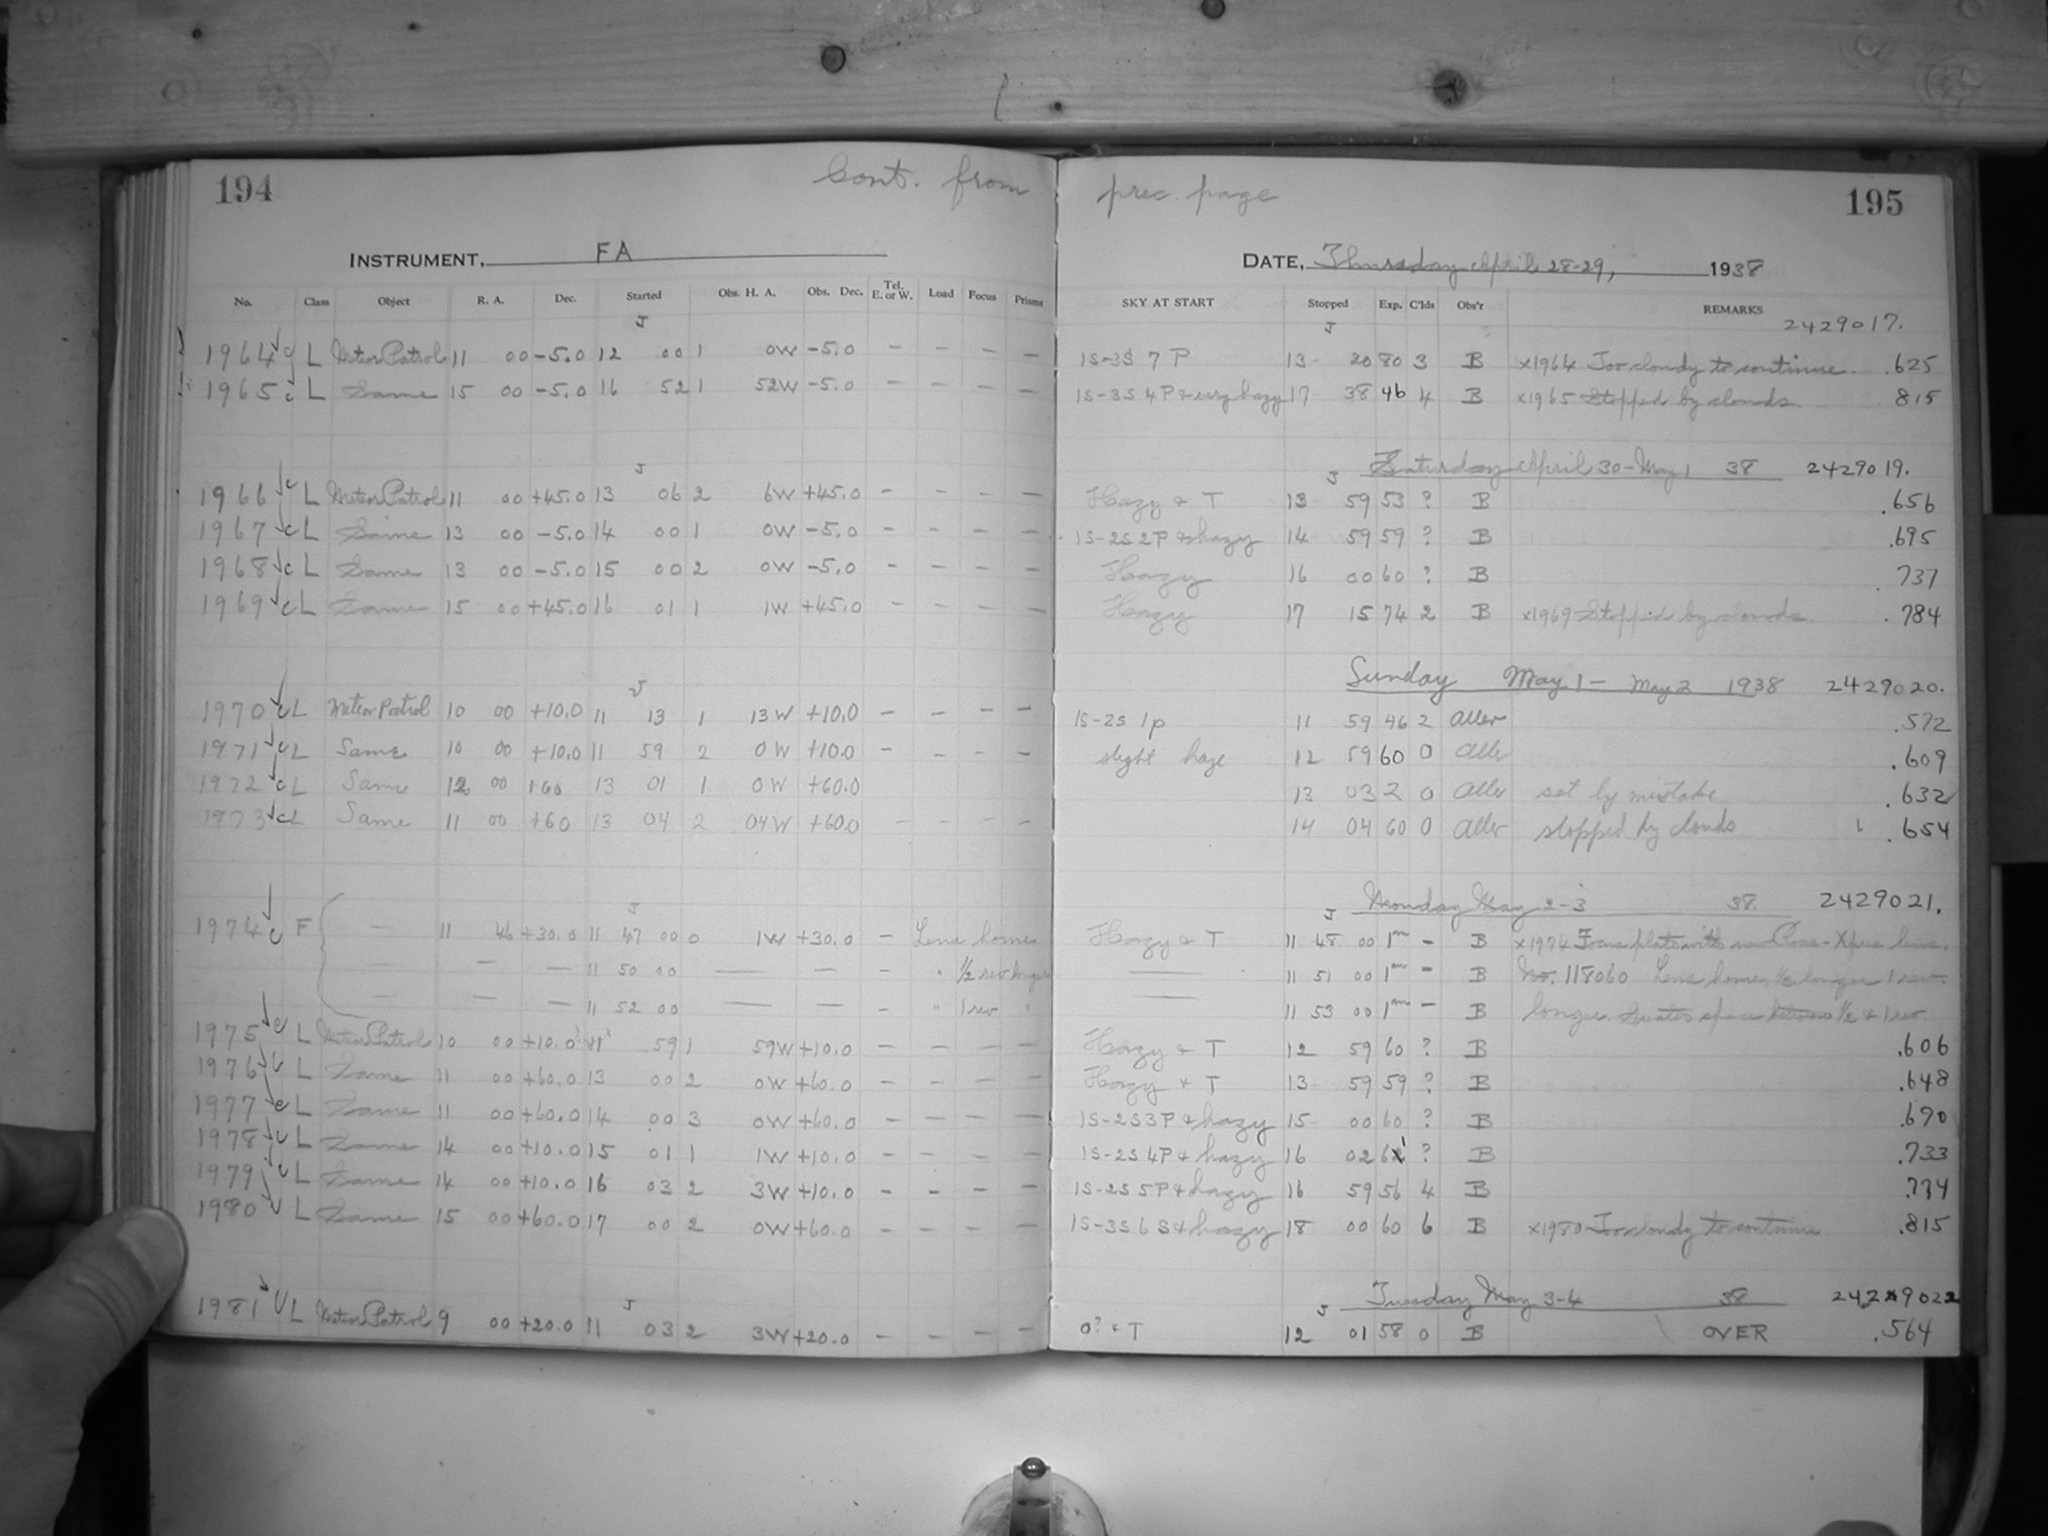 194 Cont. from prec. page 195
INSTRUMENT, FA DATE, Thursday April 28-29, 1938
No. Class Object R. A. Dec. Started Obs. H. A. Obs. Dec. Tel. E. or W. Load Focus Prisms SKY AT START Stopped Exp. C'lds Obs'r REMARKS
J J 2429017.
1964 c L Meteor Patrol 11 00 -5.0 12 00 1 0W -5.0 - - - - 1S-3S 7 P 13 20 80 3 B x1964 Too cloudy to continue. .625
1965 c L Same 15 00 -5.0 16 52 1 52W -5.0 - - - - 1S-3S 4P & very hazy 17 38 46 4 B x1965 Stopped by clouds. 815
J J Saturday April 30-May 1 38 2429019.
1966 c L Meteor Patrol 11 00 +45.0 13 06 2 6W +45.0 - - - - Hazy & T 13 59 53 ? B .656
1967 c L Same 13 00 -5.0 14 00 1 0W -5.0 - - - - 1S-2S 2P & hazy 14 59 59 ? B .695
1968 c L Same 13 00 -5.0 15 00 2 0W -5.0 - - - - Hazy 16 00 60 ? B .737
1969 c L Same 15 00 +45.0 16 01 1 1W +45.0 - - - - Hazy 17 15 74 2 B x1969 Stopped by clouds. .784
J Sunday May 1 - May 2 1938 2429020.
1970 c L Meteor Patrol 10 00 +10.0 11 13 1 13W +10.0 - - - - 1S-2S 1p 11 59 46 2 Aller .572
1971 c L Same 10 00 +10.0 11 59 2 0W +10.0 - - - - slight haze 12 59 60 0 Aller .609
1972 c L Same 12 00 +60 13 01 1 0W +60.0 13 03 2 0 Aller set by mistake .632
1973 c L Same 11 00 +60 13 04 2 04W +60.0 - - - - 14 04 60 0 Aller stopped by clouds .654
J J Monday May 2-3 38 2429021.
1974 c F - 11 46 +30.0 11 47 00 0 1W +30.0 - Lens home Hazy & T 11 48 00 1m - B x1974 Focus plate with new Ross-Xpres lens.
- - - 11 50 00 - - - " 1/2 rev longer - 11 51 00 1m - B No. 118060 Lens home, 1/2 longer 1 rev.
- - - 11 52 00 - - - " 1 rev " - 11 53 00 1m - B longer. Greater space between 1/2 & 1 rev.
1975 c L Meteor Patrol 10 00 +10.0 11 59 1 59W +10.0 - - - - Hazy & T 12 59 60 ? B .606
1976 c L Same 11 00 +60.0 13 00 2 0W +60.0 - - - - Hazy & T 13 59 59 ? B .648
1977 c L Same 11 00 +60.0 14 00 3 0W +60.0 - - - - 1S-2S 3P & hazy 15 00 60 ? B .690
1978 c L Same 14 00 +10.0 15 01 1 1W +10.0 - - - - 1S-2S 4P & hazy 16 02 61 ? B .733
1979 c L Same 14 00 +10.0 16 03 2 3W +10.0 - - - - 1S-2S 5P & hazy 16 59 56 4 B .774
1980 L Same 15 00 +60.0 17 00 2 0W +60.0 - - - - 1S-3S 6 S & hazy 18 00 60 6 B x1980 Too cloudy to continue .815
J J Tuesday May 3-4 38 2429022
1981 L Meteor Patrol 9 00 +20.0 11 03 2 3W +20.0 - - - - 0? & T 12 01 58 0 B OVER .564